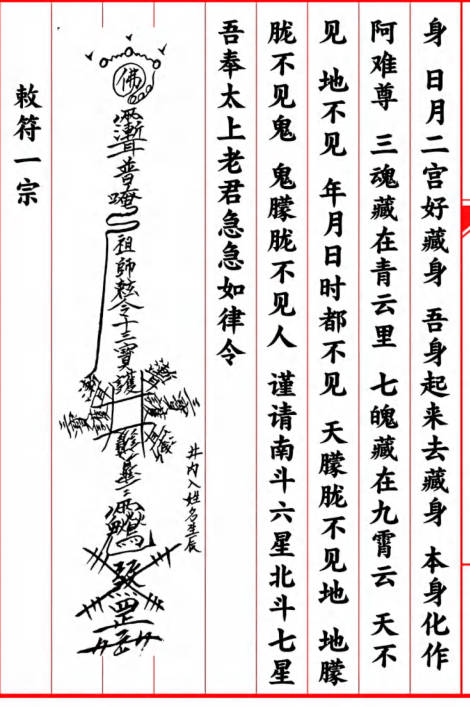 身 日月二宫好藏身 吾身起来去藏身 本身化作
阿难尊 三魂藏在青云里 七魄藏在九霄云 天不
见 地不见 年月日时都不见 天朦胧不见地 地朦
胧不见鬼 鬼朦胧不见人 谨请南斗六星北斗七星
吾奉太上老君急急如律令
佛
普唵
祖師敕令十三寶護
井内入姓名生辰
罡
敕符一宗